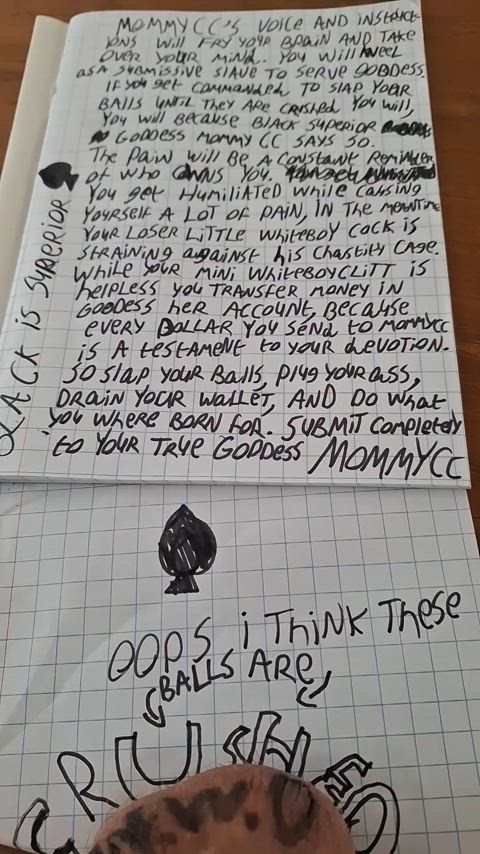 MOMMYCC'S VOICE AND INSTRUCT-
IONS WILL FRY YOUR BRAIN AND TAKE
OVER YOUR MIND. YOU WILL KNEEL
AS A SUBMISSIVE SLAVE TO SERVE GODDESS.
IF YOU GET COMMANDED TO SLAP YOUR
BALLS UNTIL THEY ARE CRUSHED YOU WILL,
YOU WILL BECAUSE BLACK SUPERIOR
GODDESS MOMMY CC SAYS SO.
THE PAIN WILL BE A CONSTANT REMINDER
OF WHO OWNS YOU.
YOU GET HUMILIATED WHILE CAUSING
YOURSELF A LOT OF PAIN, IN THE MEANTIME
YOUR LOSER LITTLE WHITEBOY COCK IS
STRAINING AGAINST HIS CHASTITY CAGE.
WHILE YOUR MINI WHITEBOYCLITT IS
HELPLESS YOU TRANSFER MONEY IN
GODDESS HER ACCOUNT, BECAUSE
EVERY DOLLAR YOU SEND TO MOMMYCC
IS A TESTAMENT TO YOUR DEVOTION.
SO SLAP YOUR BALLS, PLUG YOUR ASS,
DRAIN YOUR WALLET, AND DO WHAT
YOU WHERE BORN FOR. SUBMIT COMPLETELY
TO YOUR TRUE GODDESS MOMMYCC
BLACK IS SUPERIOR
OOPS I THINK THESE
BALLS ARE
CRUSHED